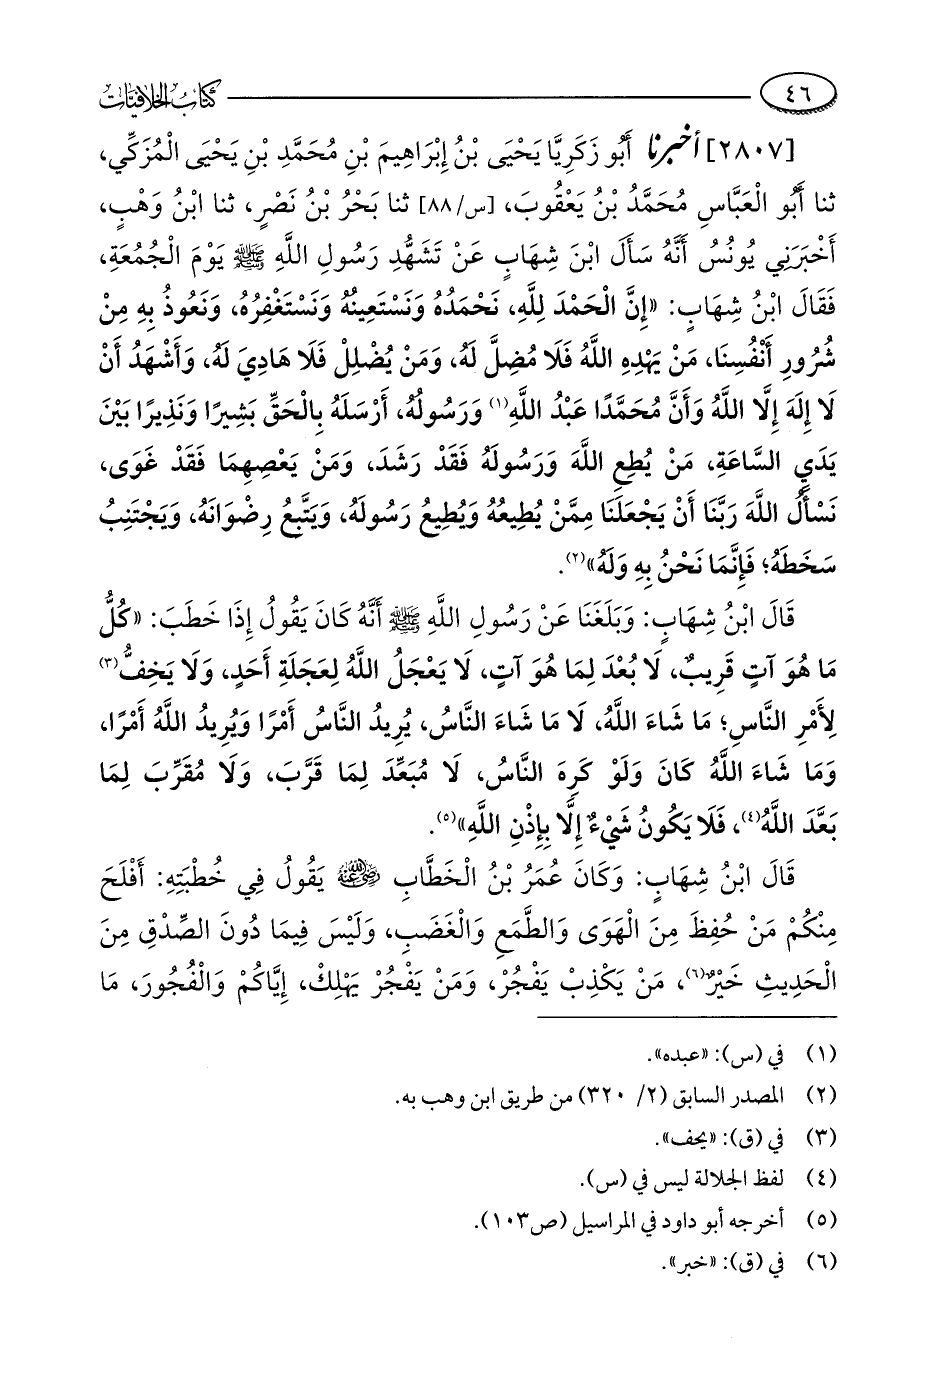 ٤٦
كتاب الخلافيات
[٢٨٠٧] أخبرنا أَبُو زَكَرِيَّا يَحْيَى بْنُ إِبْرَاهِيمَ بْنِ مُحَمَّدِ بْنِ يَحْيَى الْمُزَكِّي،
ثنا أَبُو الْعَبَّاسِ مُحَمَّدُ بْنُ يَعْقُوبَ، [س/٨٨] ثنا بَحْرُ بْنُ نَصْرٍ، ثنا ابْنُ وَهْبٍ،
أَخْبَرَنِي يُونُسُ أَنَّهُ سَأَلَ ابْنَ شِهَابٍ عَنْ تَشَهُّدِ رَسُولِ اللَّهِ ﷺ يَوْمَ الْجُمُعَةِ،
فَقَالَ ابْنُ شِهَابٍ: «إِنَّ الْحَمْدَ لِلَّهِ، نَحْمَدُهُ وَنَسْتَعِينُهُ وَنَسْتَغْفِرُهُ، وَنَعُوذُ بِهِ مِنْ
شُرُورِ أَنْفُسِنَا، مَنْ يَهْدِهِ اللَّهُ فَلَا مُضِلَّ لَهُ، وَمَنْ يُضْلِلْ فَلَا هَادِيَ لَهُ، وَأَشْهَدُ أَنْ
لَا إِلَهَ إِلَّا اللَّهُ وَأَنَّ مُحَمَّدًا عَبْدُ اللَّهِ(١) وَرَسُولُهُ، أَرْسَلَهُ بِالْحَقِّ بَشِيرًا وَنَذِيرًا بَيْنَ
يَدَيِ السَّاعَةِ، مَنْ يُطِعِ اللَّهَ وَرَسُولَهُ فَقَدْ رَشَدَ، وَمَنْ يَعْصِهِمَا فَقَدْ غَوَى،
نَسْأَلُ اللَّهَ رَبَّنَا أَنْ يَجْعَلَنَا مِمَّنْ يُطِيعُهُ وَيُطِيعُ رَسُولَهُ، وَيَتَّبِعُ رِضْوَانَهُ، وَيَجْتَنِبُ
سَخَطَهُ؛ فَإِنَّمَا نَحْنُ بِهِ وَلَهُ»(٢).
قَالَ ابْنُ شِهَابٍ: وَبَلَغَنَا عَنْ رَسُولِ اللَّهِ ﷺ أَنَّهُ كَانَ يَقُولُ إِذَا خَطَبَ: «كُلُّ
مَا هُوَ آتٍ قَرِيبٌ، لَا بُعْدَ لِمَا هُوَ آتٍ، لَا يَعْجَلُ اللَّهُ لِعَجَلَةِ أَحَدٍ، وَلَا يَخِفُّ(٣)
لِأَمْرِ النَّاسِ؛ مَا شَاءَ اللَّهُ، لَا مَا شَاءَ النَّاسُ، يُرِيدُ النَّاسُ أَمْرًا وَيُرِيدُ اللَّهُ أَمْرًا،
وَمَا شَاءَ اللَّهُ كَانَ وَلَوْ كَرِهَ النَّاسُ، لَا مُبَعِّدَ لِمَا قَرَّبَ، وَلَا مُقَرِّبَ لِمَا
بَعَّدَ اللَّهُ(٤)، فَلَا يَكُونُ شَيْءٌ إِلَّا بِإِذْنِ اللَّهِ»(٥).
قَالَ ابْنُ شِهَابٍ: وَكَانَ عُمَرُ بْنُ الْخَطَّابِ رضي الله عنه يَقُولُ فِي خُطْبَتِهِ: أَفْلَحَ
مِنْكُمْ مَنْ حُفِظَ مِنَ الْهَوَى وَالطَّمَعِ وَالْغَضَبِ، وَلَيْسَ فِيمَا دُونَ الصِّدْقِ مِنَ
الْحَدِيثِ خَيْرٌ(٦)، مَنْ يَكْذِبْ يَفْجُرْ، وَمَنْ يَفْجُرْ يَهْلِكْ، إِيَّاكُمْ وَالْفُجُورَ، مَا
(١) في (س): «عبده».
(٢) المصدر السابق (٢/ ٣٢٠) من طريق ابن وهب به.
(٣) في (ق): «يحف».
(٤) لفظ الجلالة ليس في (س).
(٥) أخرجه أبو داود في المراسيل (ص١٠٣).
(٦) في (ق): «خبر».